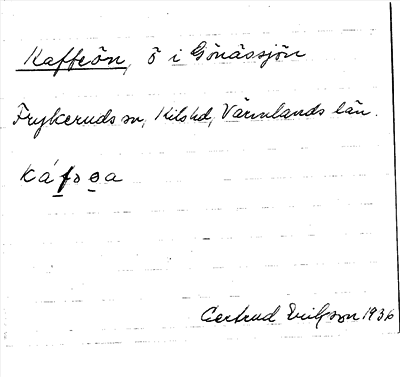 Kaffeön, ö i Gönässjön
Frykeruds sn, Kils hd, Värmlands län.
Gertrud Ericson 1936